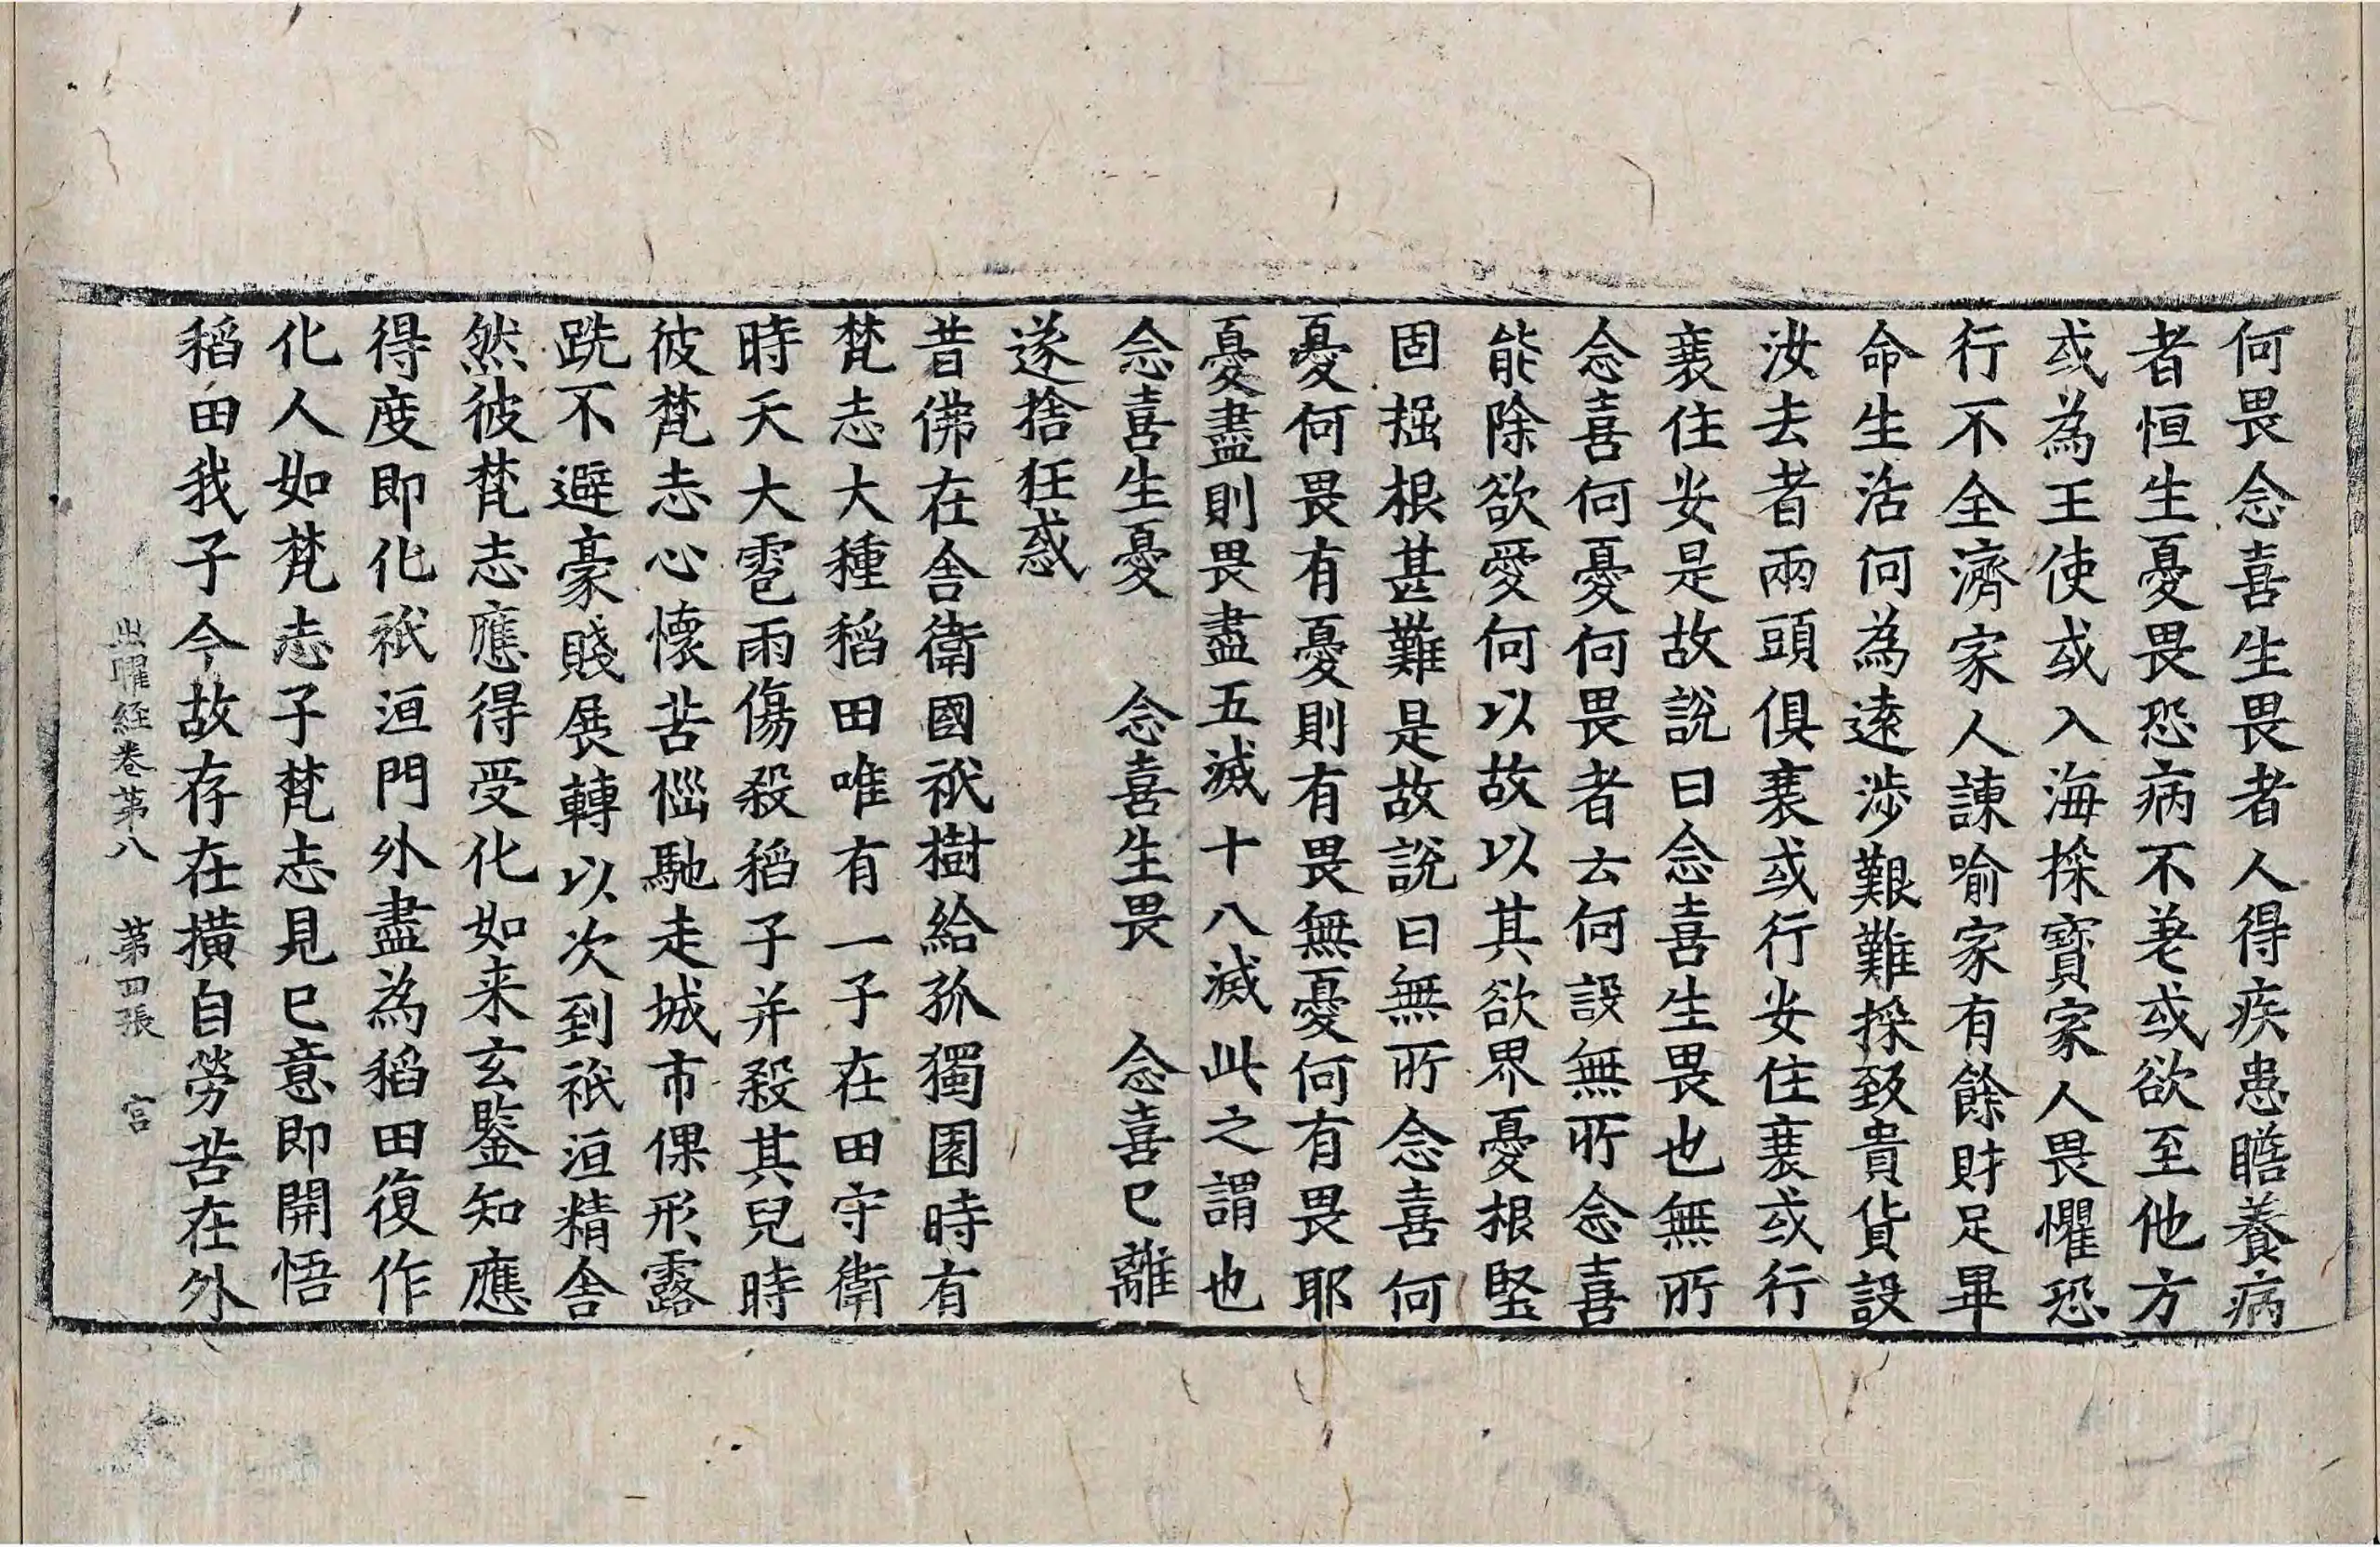 何畏念喜生畏者人得疾患瞻養病
者恒生憂畏恐病不差或欲至他方
或為王使或入海採寶家人畏懼恐
行不全濟家人諫喻家有餘財足畢
命生活何為遠涉艱難採致貴貨設
汝去者兩頭俱衰或行安住衰或行
衰住安是故說曰念喜生畏也無所
念喜何憂何畏者云何設無所念喜
能除欲愛何以故以其欲界憂根堅
固掘根甚難是故說曰無所念喜何
憂何畏有憂則有畏無憂何有畏耶
憂盡則畏盡五滅十八滅此之謂也
念喜生憂　念喜生畏　念喜已離
遂捨狂惑
昔佛在舍衛國祇樹給孤獨園時有
梵志大種稻田唯有一子在田守衛
時天大雹雨傷殺稻子并殺其兒時
彼梵志心懷苦惱馳走城市倮形露
跣不避豪賤展轉以次到祇洹精舍
然彼梵志應得受化如来玄鑒知應
得度即化祇洹門外盡為稻田復作
化人如梵志子梵志見已意即開悟
稻田我子今故存在橫自勞苦在外
出曜経卷第八　第四張　宫